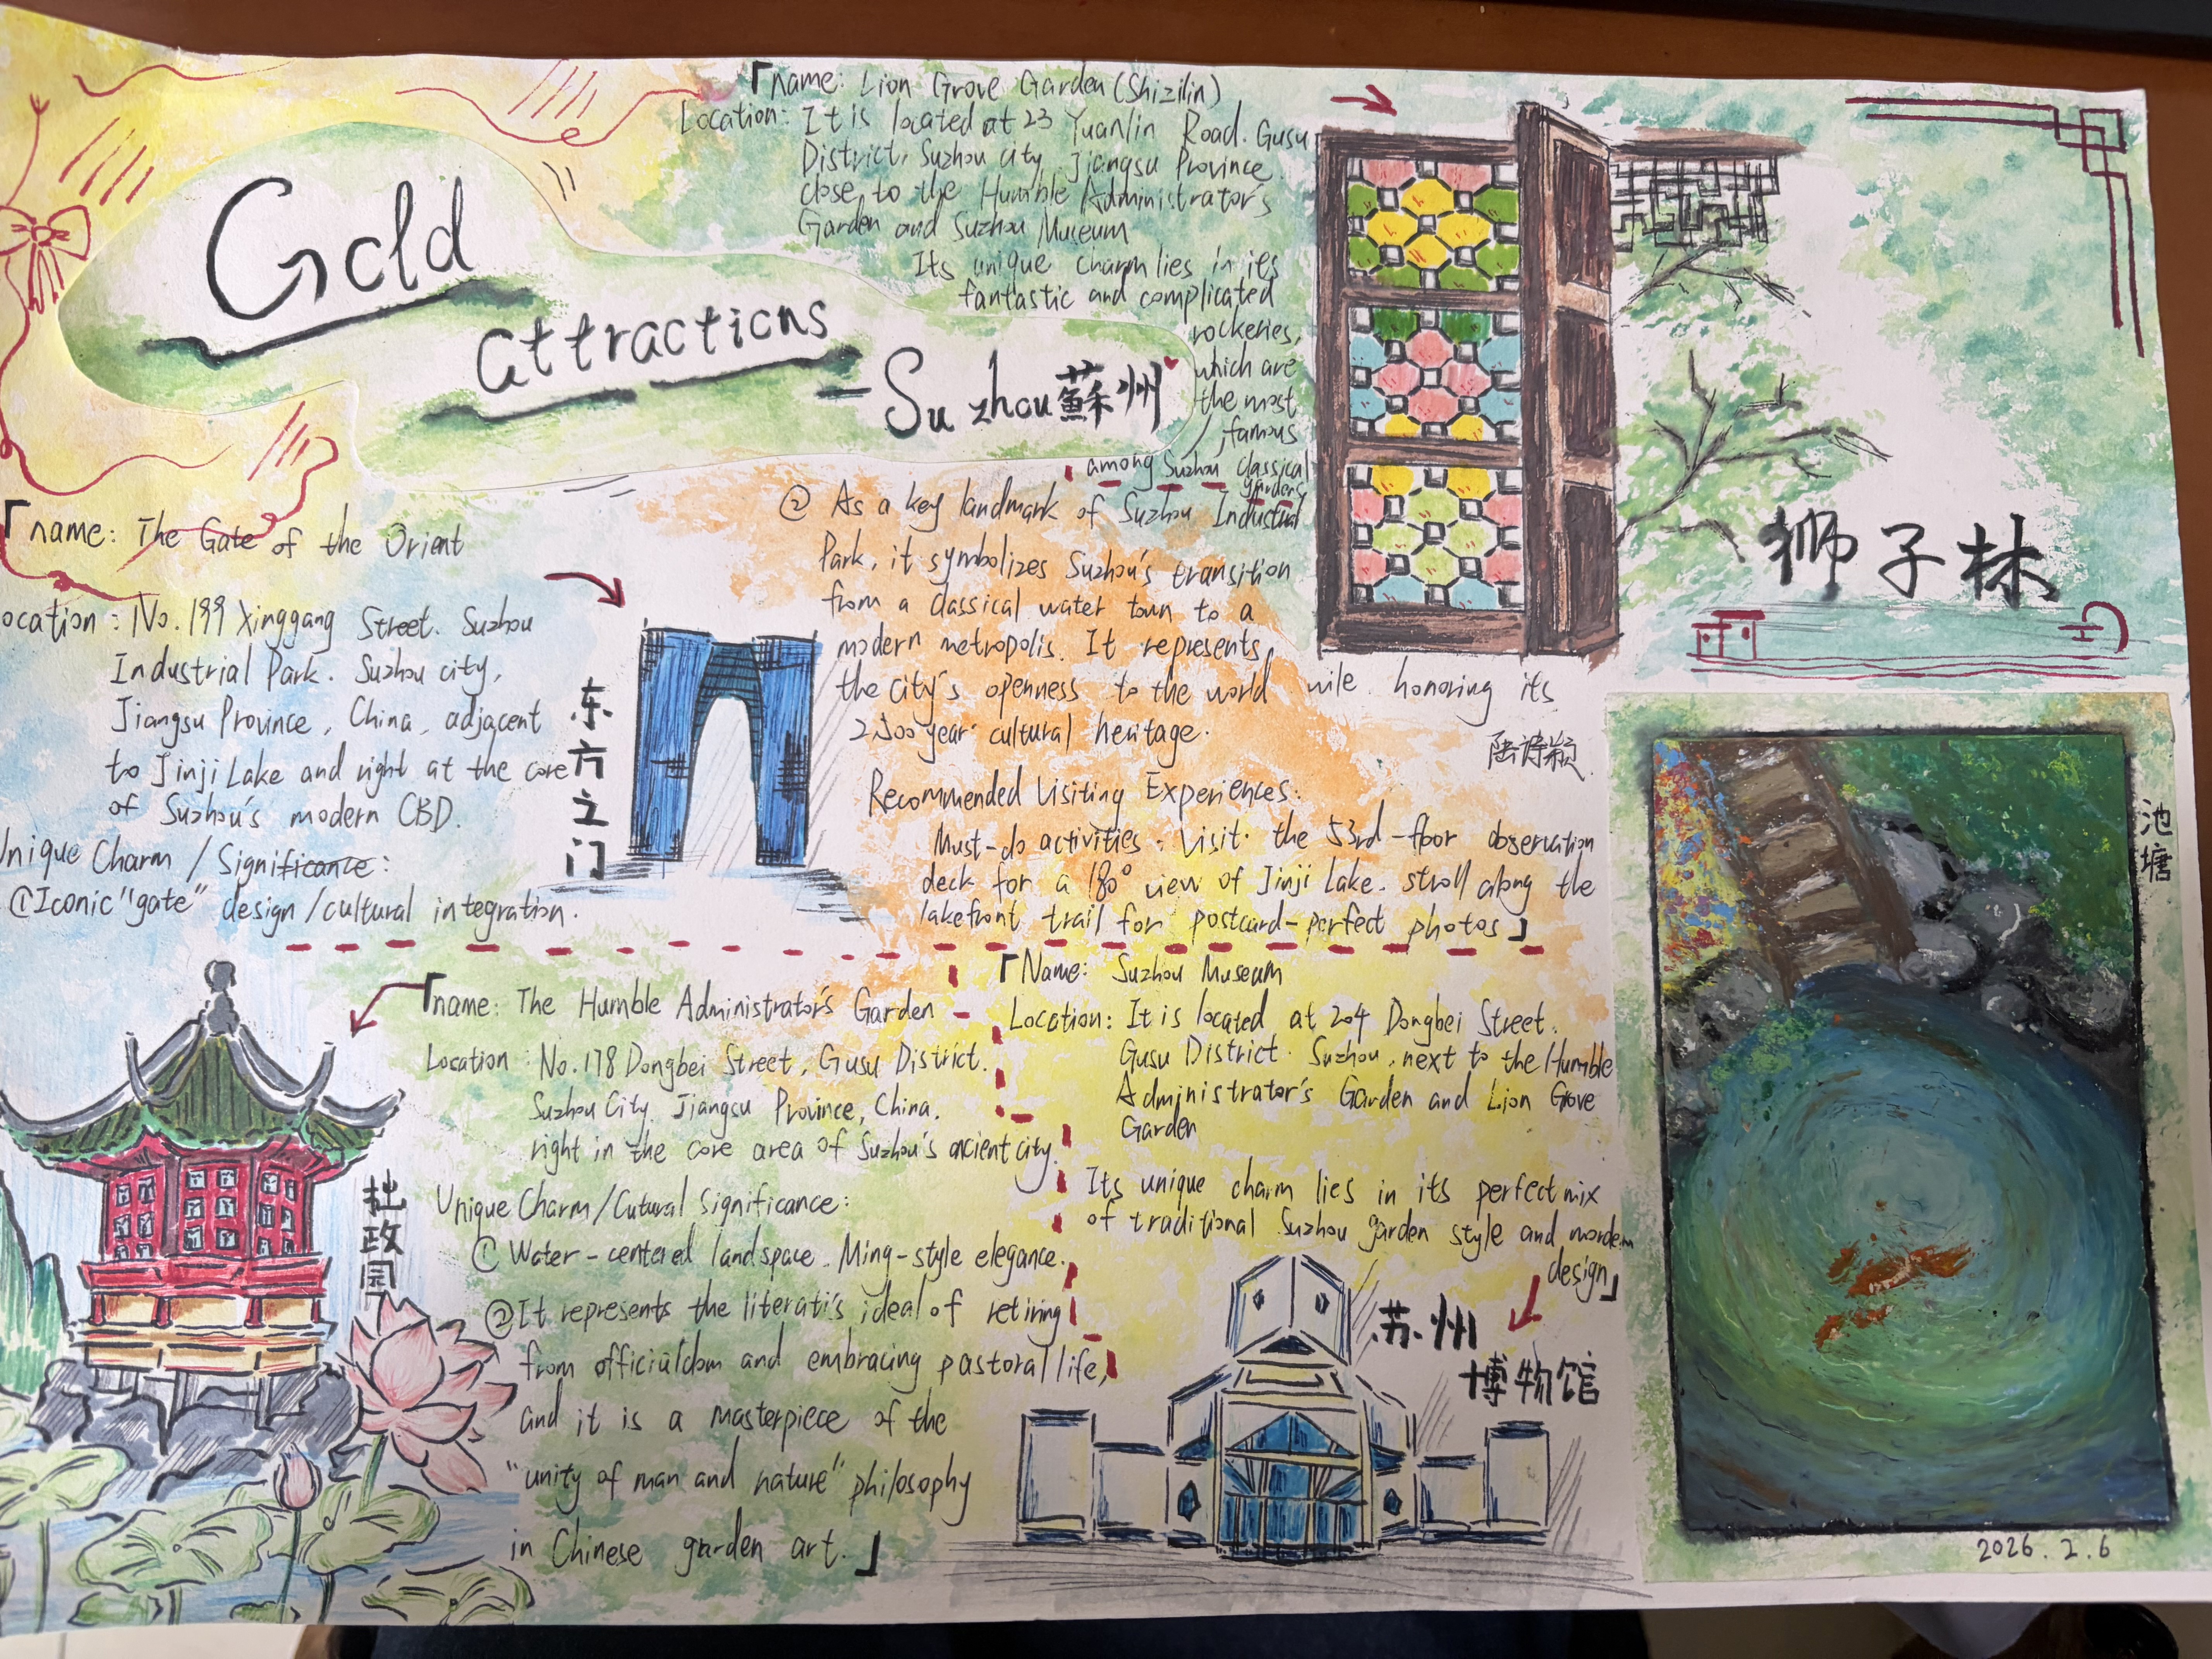 Gold
attractions
-Suzhou蘇州
「name: Lion Grove Garden(Shizilin)
Location: It is located at 23 Yuanlin Road. Gusu
District, Suzhou city, Jiangsu Province
close to the Humble Administrator's
Garden and Suzhou Museum
Its unique charm lies in its
fantastic and complicated
rockeries,
which are
the most
famous
among Suzhou classical
gardens
狮子林
「name: The Gate of the Orient
ocation: No.199 Xinggang Street. Suzhou
Industrial Park. Suzhou city,
Jiangsu Province, China, adjacent
to Jinji Lake and right at the core
of Suzhou's modern CBD.
Unique Charm / Significance:
①Iconic "gate" design/cultural integration.
东方之门
② As a key landmark of Suzhou Industrial
Park, it symbolizes Suzhou's transition
from a classical water town to a
modern metropolis. It represents
the city's openness to the world wile honoring its
2500 year cultural heritage.
陆诗颖
Recommended Visiting Experiences:
Must-do activities: Visit the 53rd-floor observation
deck for a 180° view of Jinji Lake. stroll along the
lakefront trail for postcard-perfect photos」
「name: The Humble Administrator's Garden
Location: No.178 Dongbei Street, Gusu District.
Suzhou City. Jiangsu Province, China.
right in the core area of Suzhou's ancient city.
Unique Charm/Cutural Significance:
① Water-centered landspace. Ming-style elegance.
②It represents the literati's ideal of retiring
from officialdom and embracing pastoral life,
and it is a masterpiece of the
"unity of man and nature" philosophy
in Chinese garden art.」
拙政园
「Name: Suzhou Museum
Location: It is located at 204 Dongbei Street.
Gusu District. Suzhou, next to the Humble
Administrator's Garden and Lion Grove
Garden
Its unique charm lies in its perfect mix
of traditional Suzhou garden style and mordern
design」
苏州
博物馆
池塘
2026.2.6